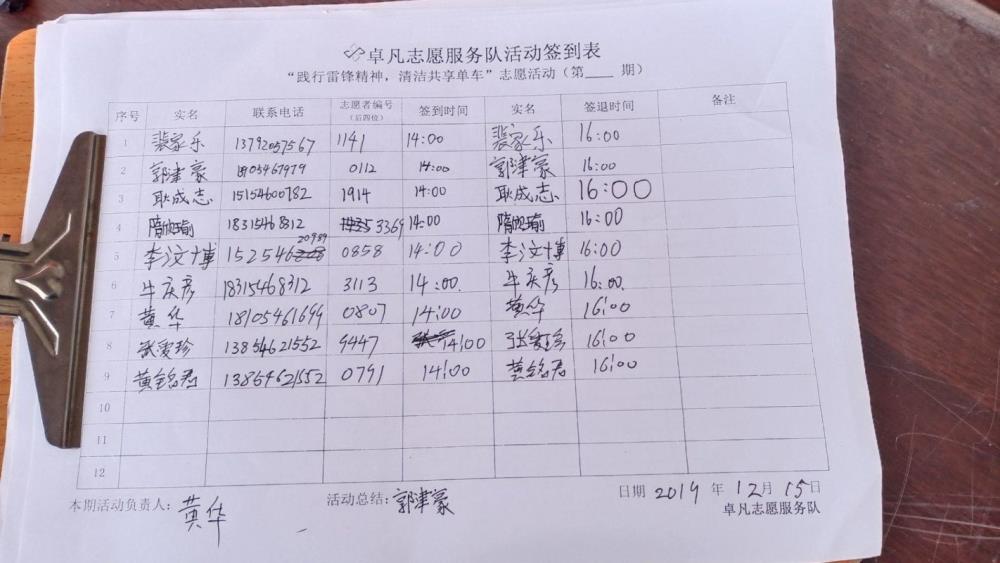 卓凡志愿服务队活动签到表
“践行雷锋精神，清洁共享单车”志愿活动（第____ 期）
序号 实名 联系电话 志愿者编号（后四位） 签到时间 实名 签退时间 备注
1 裴家乐 13792057567 1141 14:00 裴家乐 16:00
2 郭津豪 18905467979 0112 14:00 郭津豪 16:00
3 耿成志 15154600782 1914 14:00 耿成志 16:00
4 隋 瑜 18315468312 3369 14:00 隋 瑜 16:00
5 李汶博 152546 20989 0858 14:00 李汶博 16:00
6 牛庆彦 18315468312 3113 14:00 牛庆彦 16:00
7 黄华 18105461699 0807 14:00 黄华 16:00
8 张爱珍 13854621552 9447 14:00 张爱珍 16:00
9 黄铭君 13854621552 0791 14:00 黄铭君 16:00
10
11
12
本期活动负责人：黄华 活动总结：郭津豪 日期 2019 年 12月 15日
卓凡志愿服务队